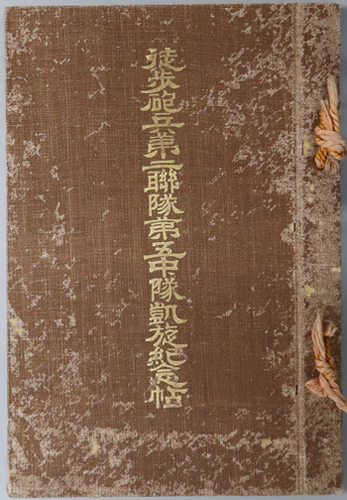 徒歩砲兵第二聯隊第五中隊凱旋紀念帖